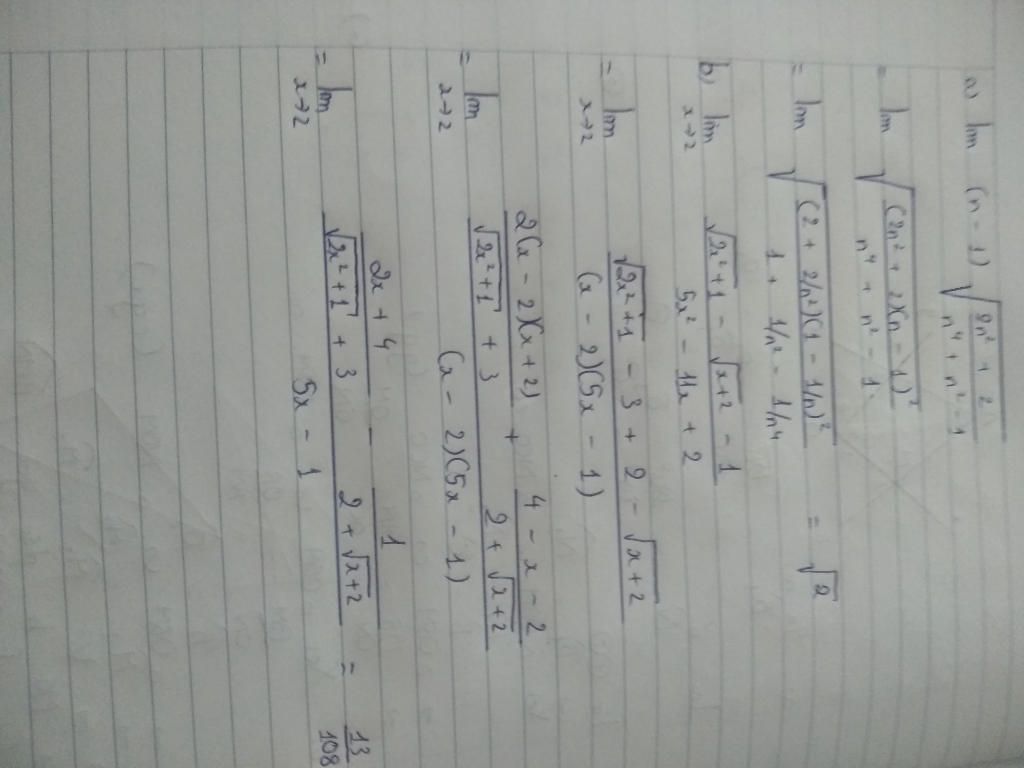 a) lim (n - 1) √((2n² + 2)/(n⁴ + n² - 1))
= lim √((2n² + 2)(n - 1)²/(n⁴ + n² - 1))
= lim √((2 + 2/n²)(1 - 1/n)²/(1 + 1/n² - 1/n⁴)) = √2
b) lim x→2 (√(2x²+1) - √(x+2) - 1)/(5x² - 11x + 2)
= lim x→2 (√(2x²+1) - 3 + 2 - √(x+2))/((x - 2)(5x - 1))
= lim x→2 (2(x - 2)(x + 2)/(√(2x²+1) + 3) + (4 - x - 2)/(2 + √(x+2)))/((x - 2)(5x - 1))
= lim x→2 ((2x + 4)/(√(2x²+1) + 3) - 1/(2 + √(x+2)))/(5x - 1) = 13/108